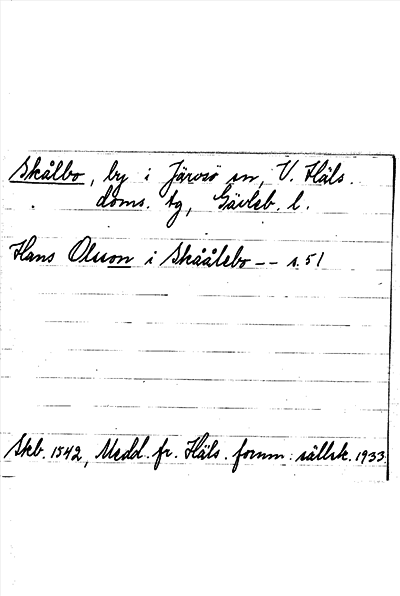 Skålbo, by i Järvsö sn, V. Häls.
doms. tg, Gävleb. l.
Hans Olsson i Skåålebo -- s. 51
Skb. 1542, Medd. fr. Häls. fornm. sällsk. 1933.